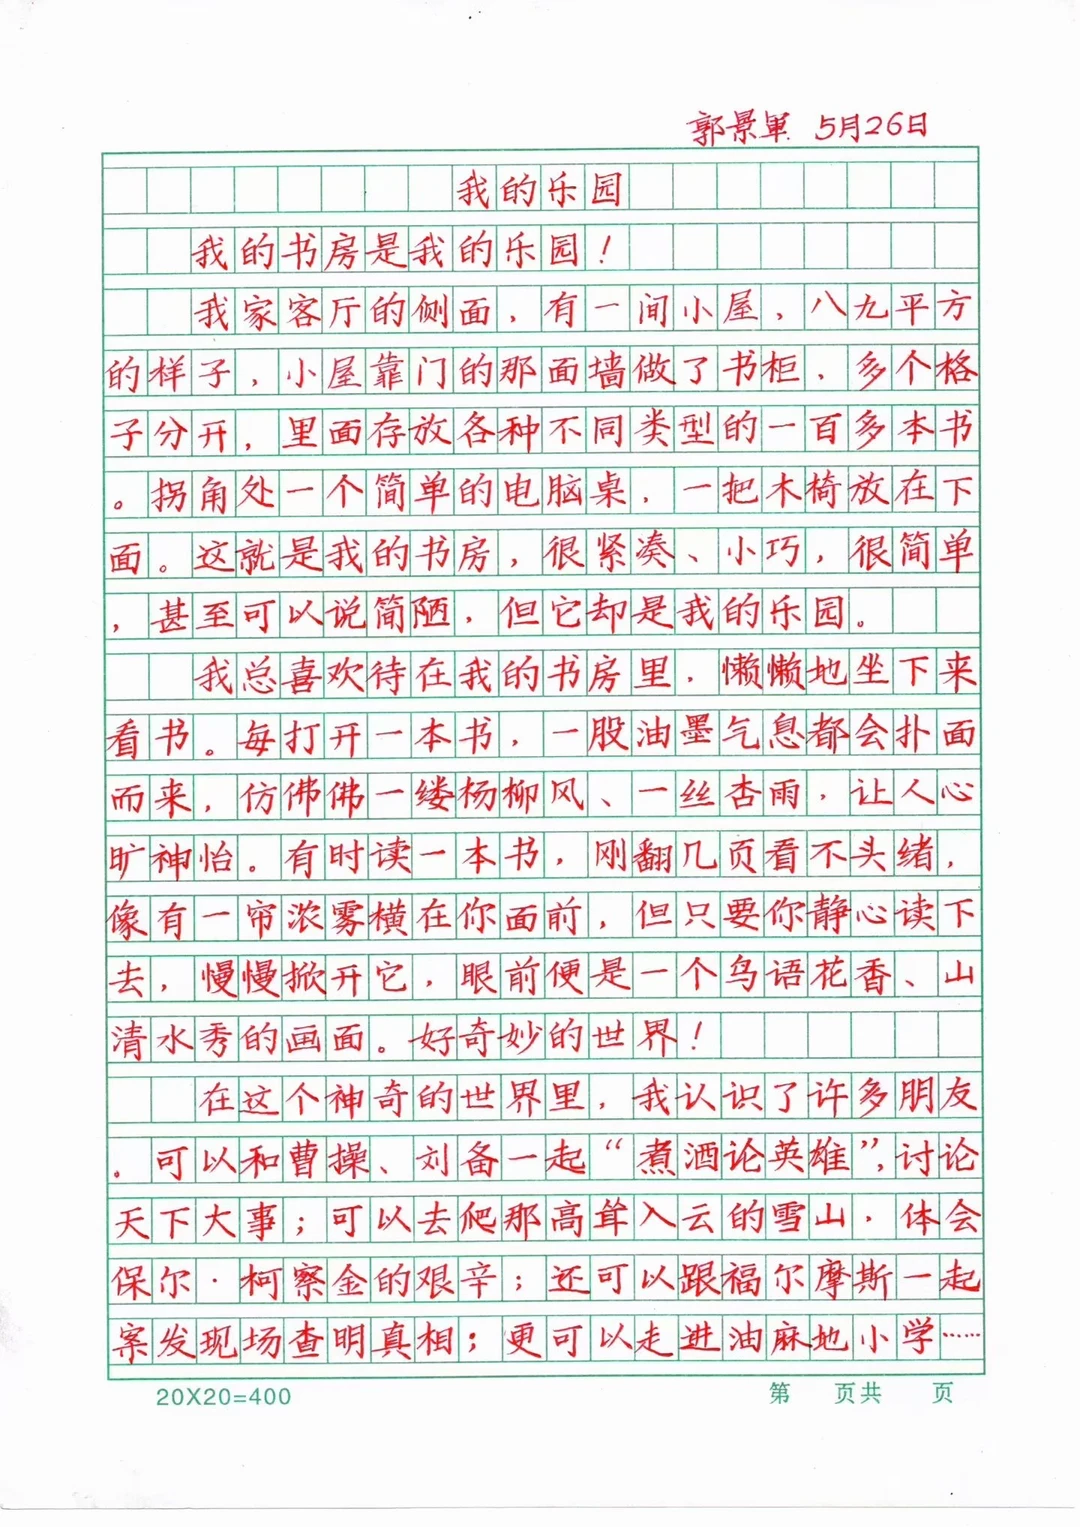 郭景軍 5月26日
我的乐园
我的书房是我的乐园！
我家客厅的侧面，有一间小屋，八九平方
的样子，小屋靠门的那面墙做了书柜，多个格
子分开，里面存放各种不同类型的一百多本书
。拐角处一个简单的电脑桌，一把木椅放在下
面。这就是我的书房，很紧凑、小巧，很简单
，甚至可以说简陋，但它却是我的乐园。
我总喜欢待在我的书房里，懒懒地坐下来
看书。每打开一本书，一股油墨气息都会扑面
而来，仿佛佛一缕杨柳风、一丝杏雨，让人心
旷神怡。有时读一本书，刚翻几页看不头绪，
像有一帘浓雾横在你面前，但只要你静心读下
去，慢慢掀开它，眼前便是一个鸟语花香、山
清水秀的画面。好奇妙的世界！
在这个神奇的世界里，我认识了许多朋友
。可以和曹操、刘备一起“煮酒论英雄”，讨论
天下大事；可以去爬那高耸入云的雪山，体会
保尔·柯察金的艰辛；还可以跟福尔摩斯一起
案发现场查明真相；更可以走进油麻地小学……
20X20=400 第 页共 页